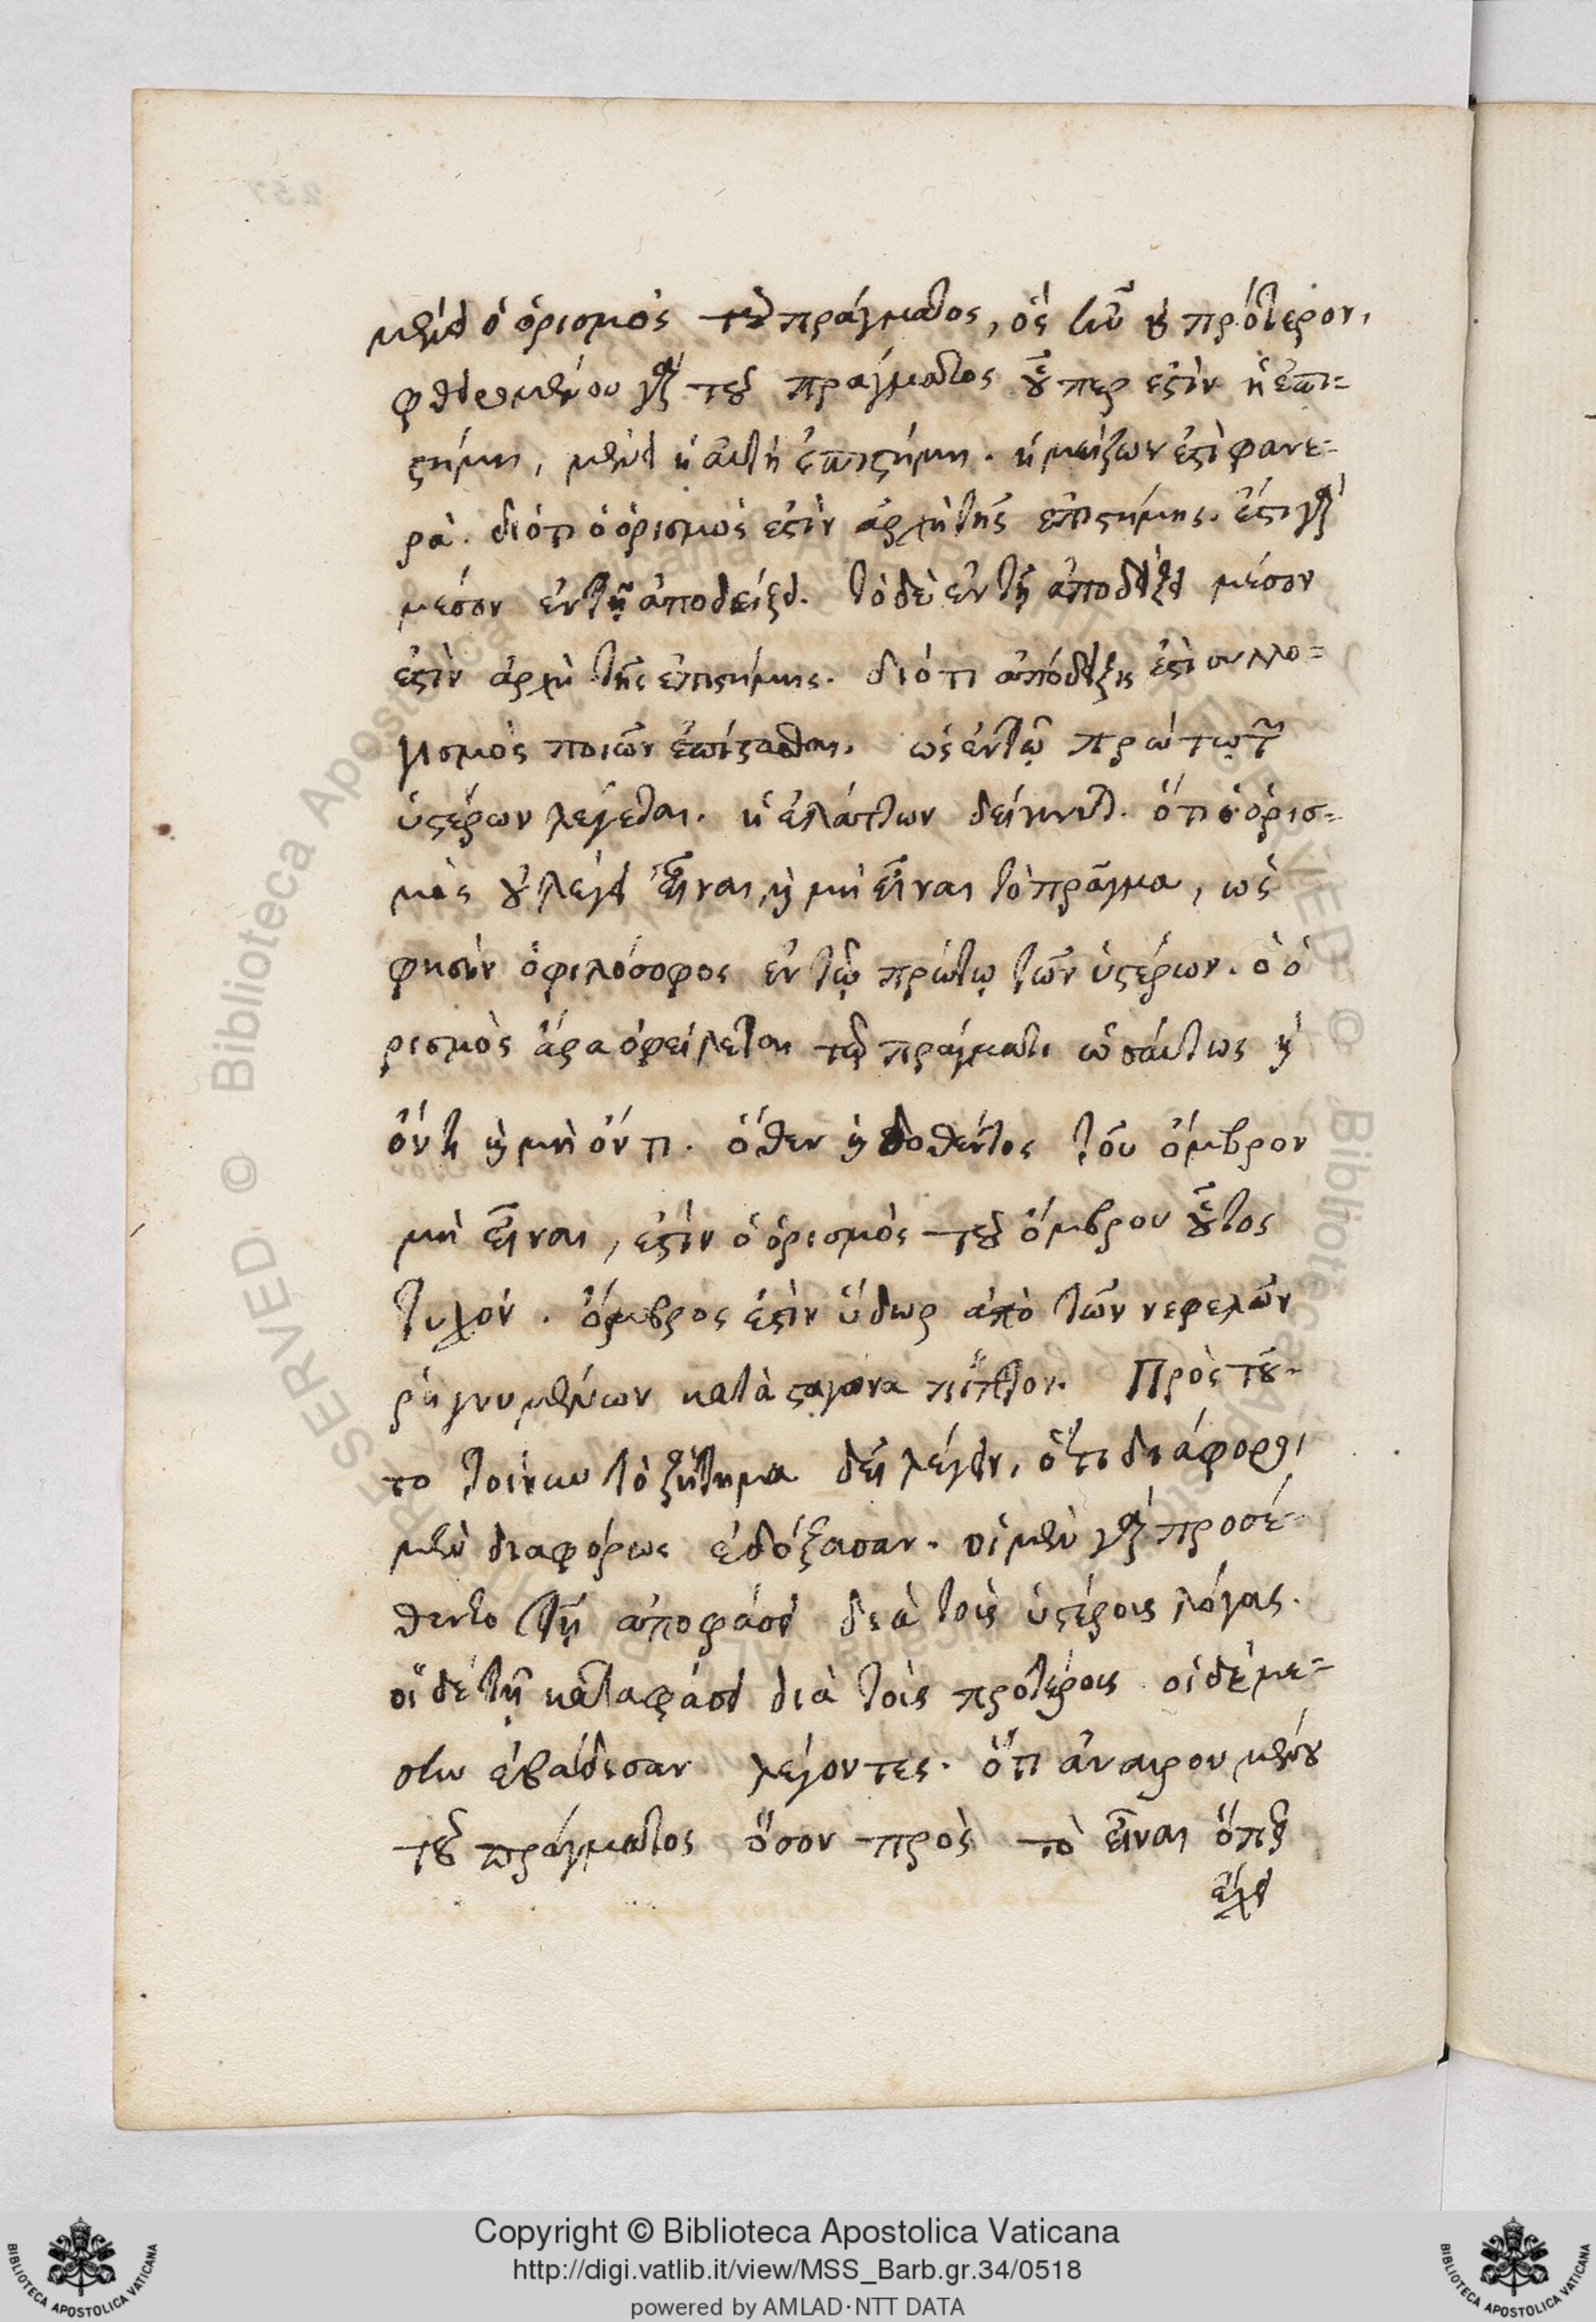 μένει ὁ ὁρισμὸς τοῦ πράγματος, ὃς ἦν καὶ πρότερον,
φθειρομένου γὰρ τοῦ πράγματος οὗπερ ἐστὶν ἡ ἐπι-
στήμη, μένει ἡ αὐτὴ ἐπιστήμη. ἡ μείζων ἐστὶ φανε-
ρά. διότι ὁ ὁρισμός ἐστιν ἀρχὴ τῆς ἐπιστήμης. ἔστι γὰρ
μέσον ἐν τῇ ἀποδείξει. τὸ δὲ ἐν τῇ ἀποδείξει μέσον
ἐστὶν ἀρχὴ τῆς ἐπιστήμης. διότι ἀπόδειξις ἐστὶ συλλο-
γισμὸς ποιῶν ἐπίστασθαι. ὡς ἐν τῷ πρώτῳ τῶν
ὑστέρων λέγεται. ἡ ἐλάττων δείκνυται. ὅτι ὁ ὁρισ-
μὸς οὐ λέγει εἶναι ἢ μὴ εἶναι τὸ πρᾶγμα, ὡς
φησὶν ὁ φιλόσοφος ἐν τῷ πρώτῳ τῶν ὑστέρων. ὁ ὁ
ρισμὸς ἄρα ὀφείλεται τῷ πράγματι ὡσαύτως καὶ
ὄντι καὶ μὴ ὄντι. ὅθεν καὶ δοθέντος τοῦ ὄμβρον
μὴ εἶναι, ἐστὶν ὁ ὁρισμὸς τοῦ ὄμβρου οὗτος
τυχόν. ὄμβρος ἐστὶν ὕδωρ ἀπὸ τῶν νεφελῶν
ῥηγνυμένων κατὰ σταγόνα πίπτον. Πρὸς τοῦ-
το τοίνυν τὸ ζήτημα δεῖ λέγειν, ὅτι διάφοροι
μὲν διαφόρως ἐδόξασαν. οἱ μὲν γὰρ προσέ-
θεντο τῇ ἀποφάσει διὰ τοὺς ὑστέρους λόγους.
οἱ δὲ τῇ καταφάσει διὰ τοὺς προτέρους. οἱ δὲ μέ-
σην ἐβάδισαν λέγοντες. ὅτι ἀναιρουμένου
τοῦ πράγματος ὅσον πρὸς τὸ εἶναι ὅπερ
ἔχει
Copyright © Biblioteca Apostolica Vaticana
http://digi.vatlib.it/view/MSS_Barb.gr.34/0518
powered by AMLAD·NTT DATA